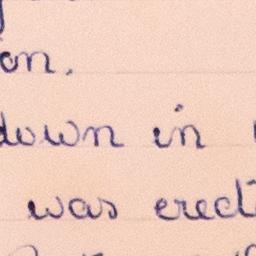 on.
down in
was erect